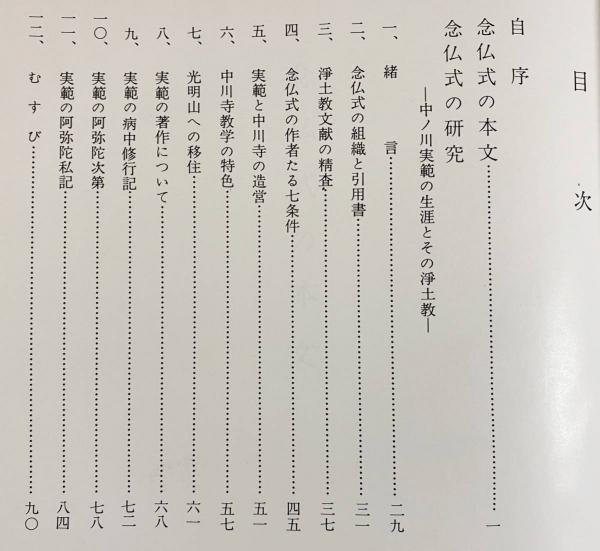 目次
自序
念仏式の本文……………………一
念仏式の研究
―中ノ川実範の生涯とその淨土教―
一、緒言……………………二九
二、念仏式の組織と引用書……………………三一
三、淨土教文献の精査……………………三七
四、念仏式の作者たる七条件……………………四五
五、実範と中川寺の造営……………………五一
六、中川寺教学の特色……………………五七
七、光明山への移住……………………六一
八、実範の著作について……………………六八
九、実範の病中修行記……………………七二
一〇、実範の阿弥陀次第……………………七八
一一、実範の阿弥陀私記……………………八四
一二、むすび……………………九〇